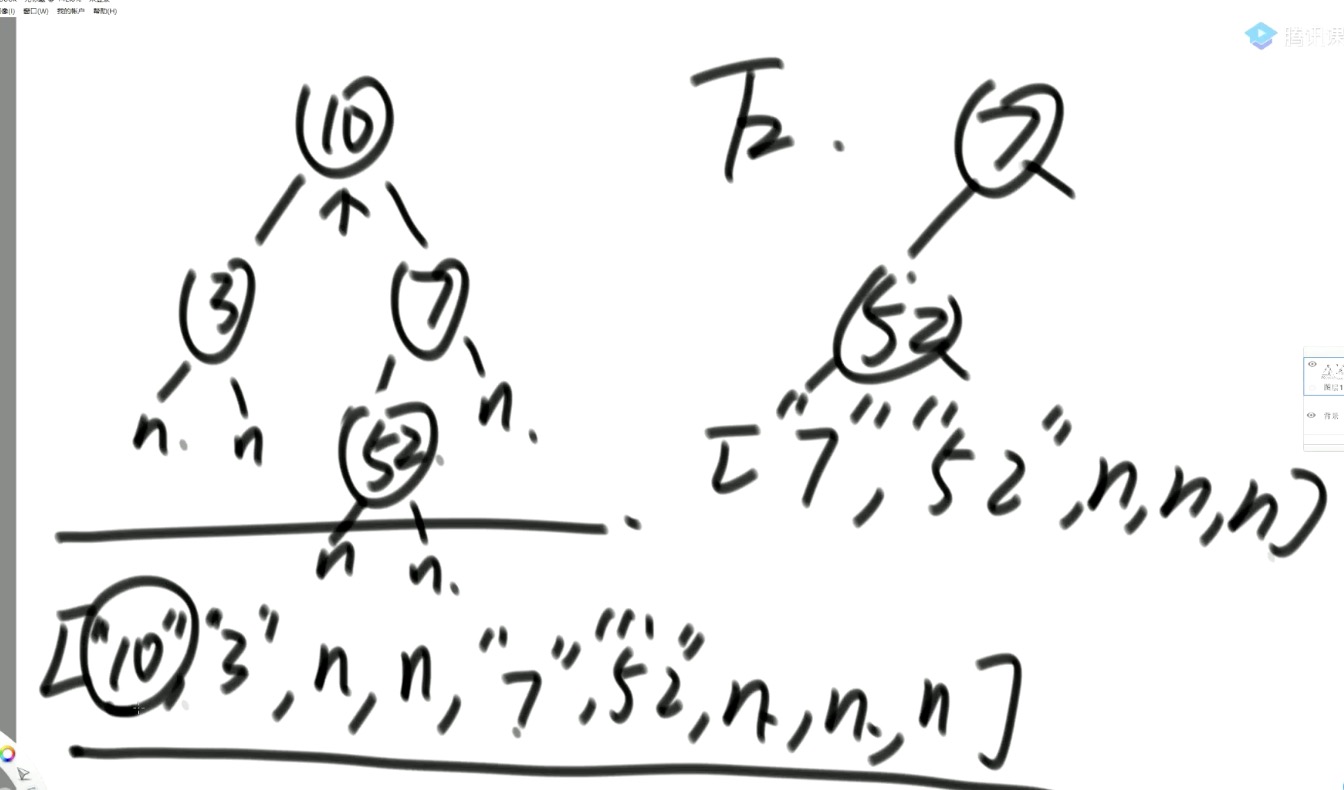 窗口(W) 我的帐户 帮助(H)
腾讯课
10
3 7
n. n 52 n.
n n.
["10","3",n,n,"7","52",n,n,n]
7
52
["7","52",n,n,n]
图层1
背景